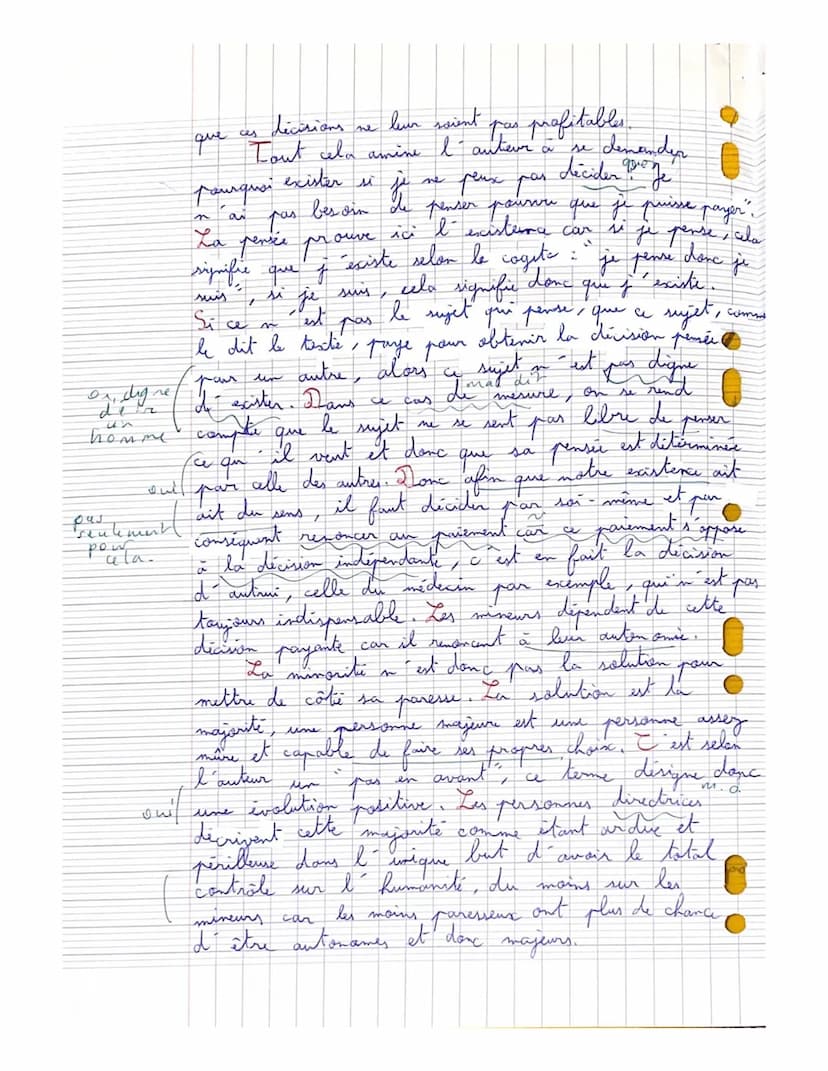 que ces décisions ne leur soient pas profitables.
Tout cela amène l'auteur à se demander
pourquoi exister si je ne peux pas décider : "je
n'ai pas besoin de penser pourvu que je puisse payer".
La pensée prouve ici l'existence car si je pense, cela
signifie que j'existe selon le cogito : "je pense donc je
suis", si je suis, cela signifie donc que j'existe.
Si ce n'est pas le sujet qui pense, que ce sujet, comme
le dit le texte, paye pour obtenir la décision pensée
par un autre, alors ce sujet n'est pas digne
ou, digne
d'être
un
homme
mal dit
d'exister. Dans ce cas de mesure, on se rend
compte que le sujet ne se sent pas libre de penser
ce qu'il veut et donc que sa pensée est déterminée
oui
par celle des autres. Donc afin que notre existence ait
pas
seulement
pour
cela.
ait du sens, il faut décider par soi-même et par
conséquent renoncer au paiement car ce paiement s'oppose
à la décision indépendante, c'est en fait la décision
d'autrui, celle du médecin par exemple, qui n'est pas
toujours indispensable. Les mineurs dépendent de cette
décision payante car il renoncent à leur autonomie.
La minorité n'est donc pas la solution pour
mettre de côté sa paresse. La solution est la
majorité, une personne majeure est une personne assez
mûre et capable de faire ses propres choix. C'est selon
l'auteur un "pas en avant", ce terme désigne donc
oui
une évolution positive. Les personnes directrices
décrivent cette majorité comme étant ardue et
périlleuse dans l'unique but d'avoir le total
contrôle sur l'humanité, du moins sur les
mineurs car les moins paresseux ont plus de chance
d'être autonomes et donc majeurs.